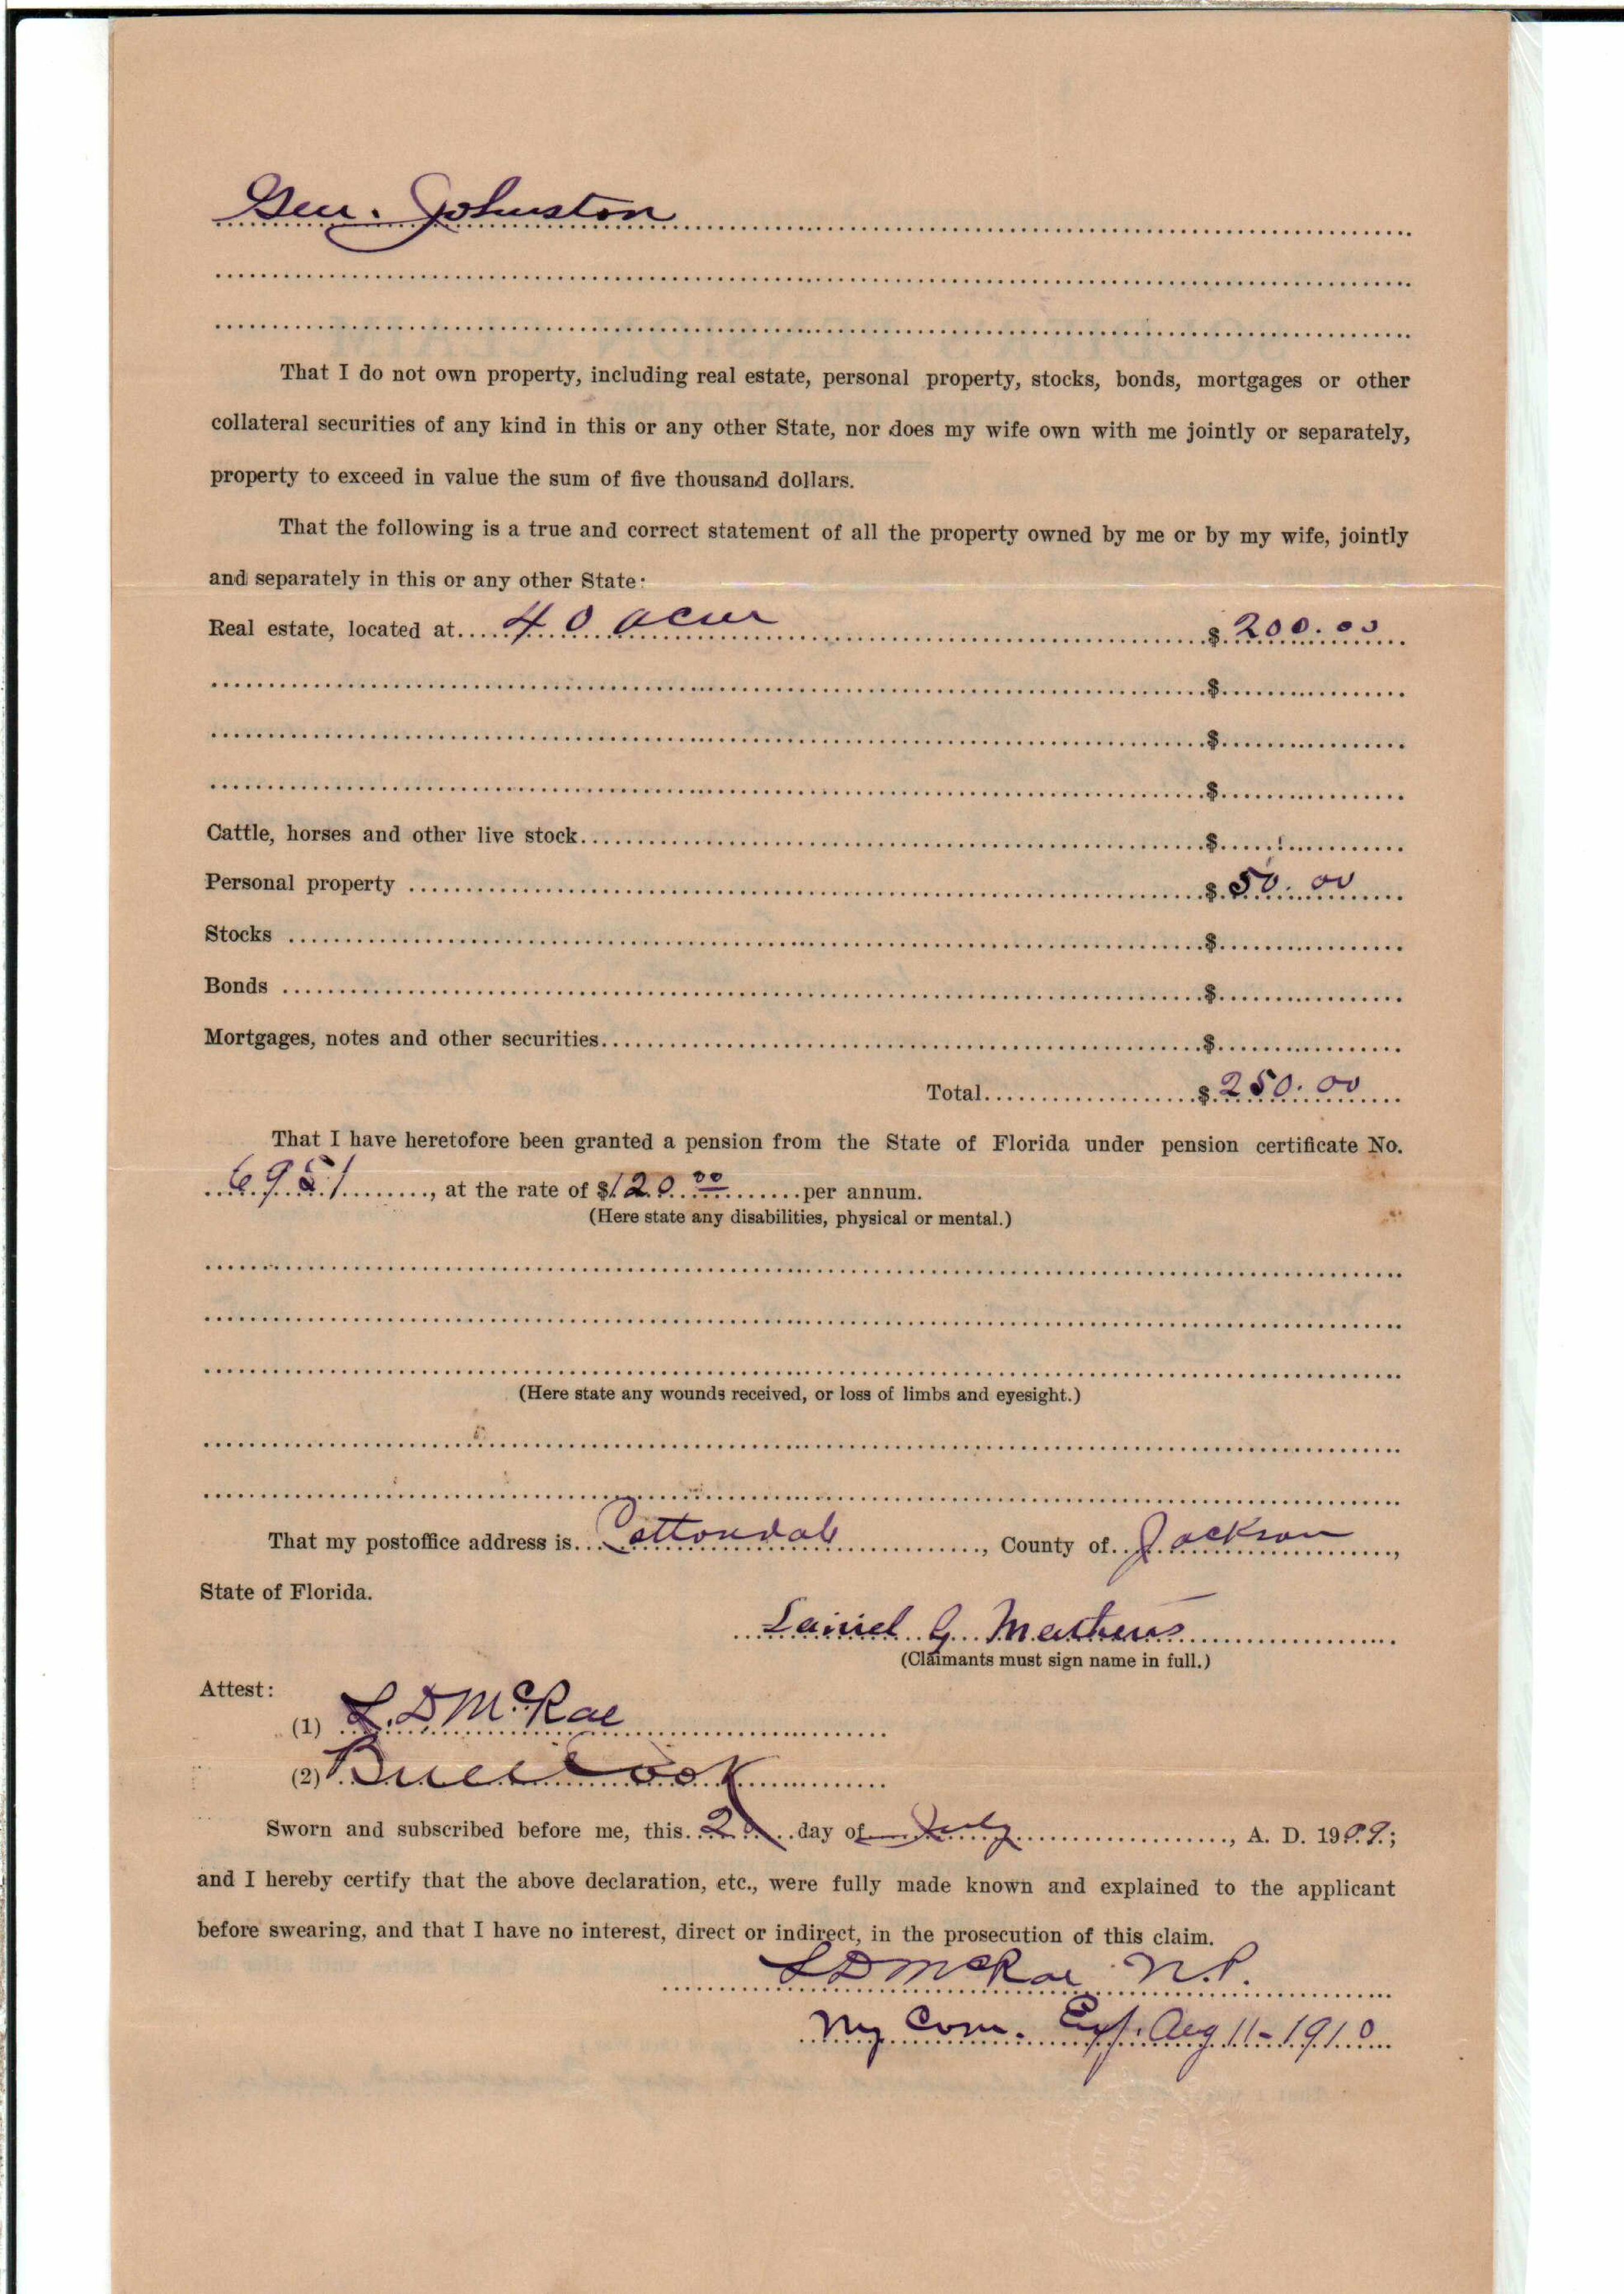 Gen. Johnston
That I do not own property, including real estate, personal property, stocks, bonds, mortgages or other
collateral securities of any kind in this or any other State, nor does my wife own with me jointly or separately,
property to exceed in value the sum of five thousand dollars.
That the following is a true and correct statement of all the property owned by me or by my wife, jointly
and separately in this or any other State:
Real estate, located at 40 acres $ 200.00
$
$
$
Cattle, horses and other live stock $
Personal property $ 50.00
Stocks $
Bonds $
Mortgages, notes and other securities $
Total $ 250.00
That I have heretofore been granted a pension from the State of Florida under pension certificate No.
6951, at the rate of $120.00 per annum.
(Here state any disabilities, physical or mental.)
(Here state any wounds received, or loss of limbs and eyesight.)
That my postoffice address is Cottondale, County of Jackson,
State of Florida.
G Mathews
(Claimants must sign name in full.)
Attest:
(1) L. D McRae
(2) Cook
Sworn and subscribed before me, this 2 day of July, A. D. 1909;
and I hereby certify that the above declaration, etc., were fully made known and explained to the applicant
before swearing, and that I have no interest, direct or indirect, in the prosecution of this claim.
L D McRae N.P.
My Com. Exp. Aug 11-1910